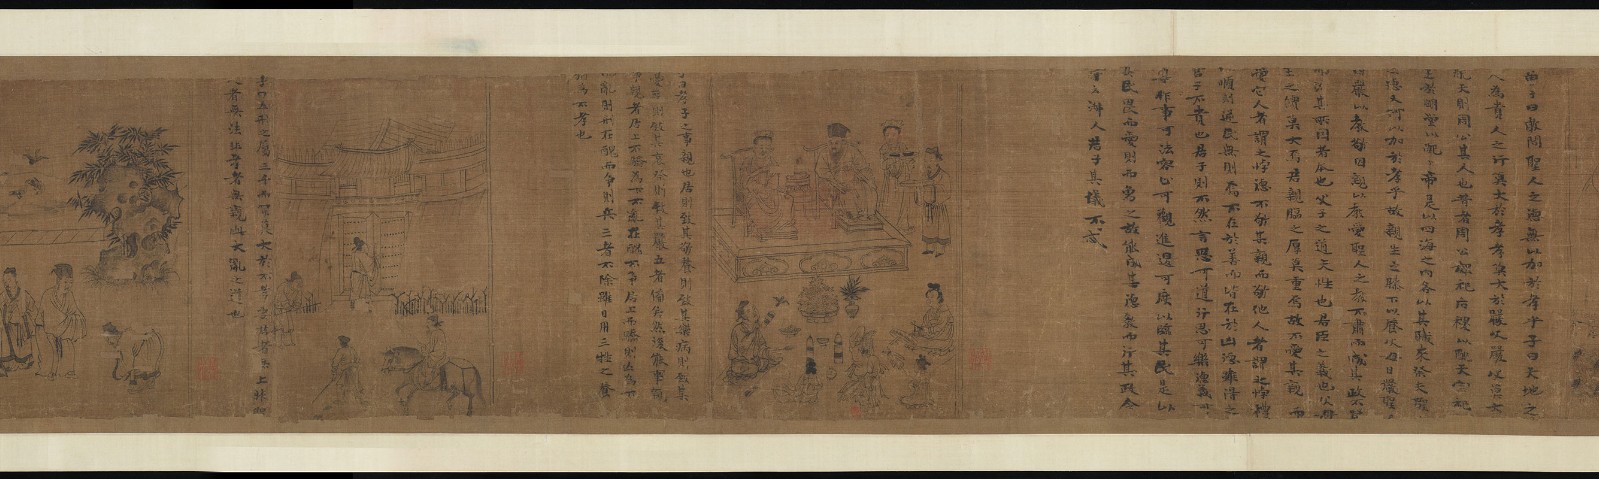 曰敢問聖人之德無以加於孝乎子曰天地之
人為貴人之行莫大於孝孝莫大於嚴父嚴父莫大
配天則周公其人也昔者周公郊祀后稷以配天宗祀
王於明堂以配上帝是以四海之内各以其職來祭夫聖
之德又何以加於孝乎故親生之膝下以養父母日嚴聖人
因嚴以教敬因親以教愛聖人之教不肅而成其政不
其所因者本也父子之道天性也君臣之義也父母
生之績莫大焉君親臨之厚莫重焉故不愛其親而
愛它人者謂之悖德不敬其親而敬他人者謂之悖禮
以順則逆民無則焉不在於善而皆在於凶德雖得之
君子不貴也君子則不然言思可道行思可樂德義可
作事可法容止可觀進退可度以臨其民是以
其民畏而愛則而象之故能成其德教而行其政令
淑人君子其儀不忒
孝子之事親也居則致其敬養則致其樂病則致其
憂喪則致其哀祭則致其嚴五者備矣然後能事
親者居上不驕為下不亂在醜不爭居上而驕則亡為下而
亂則刑在醜而爭則兵三者不除雖日用三牲之養
猶為不孝也
子曰五刑之屬三千而罪莫大於不孝要君者無上非聖
人者無法非孝者無親此大亂之道也